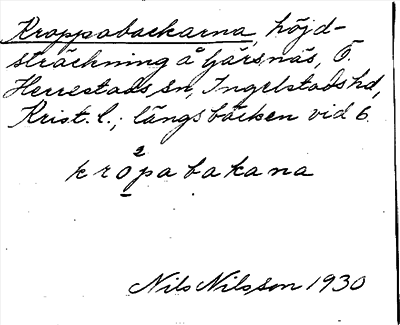 Kroppabackarna, höjd-
sträckning å Gärsnäs, Ö.
Herrestads sn, Ingelstads hd,
Krist. l.; längs bäcken vid 6.
2
kropabakana
Nils Nilsson 1930